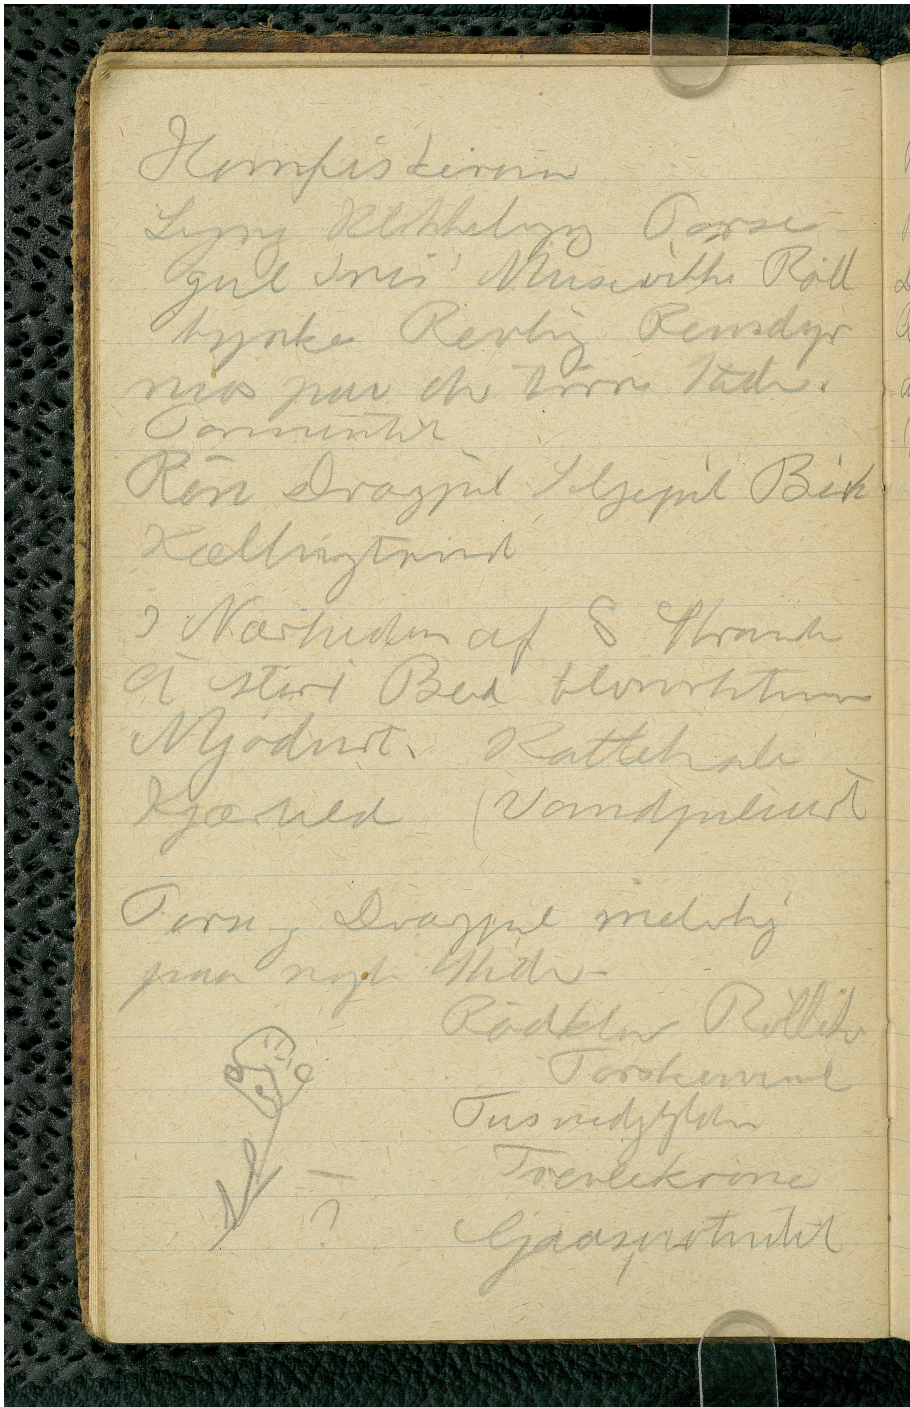 Hornfiskeren
Lyng Klokkelyng Porse
gul Iris Musevikke Röll
bynke Revling Rensdyr
mos paa de törre Steder.
Tormentil
Rön Dragpil Seljepil Birk
Kællingtand
I Nærheden af S Strand
et stort Bed
Mjödurt. Kattehale
Kjærtild (Vandpileurt
Porse og Dragpil
paa nogle Steder
Rödklöver Röllike
Torskemund
Tusindgylden
Trevlekrone
Gaasepotentil
?